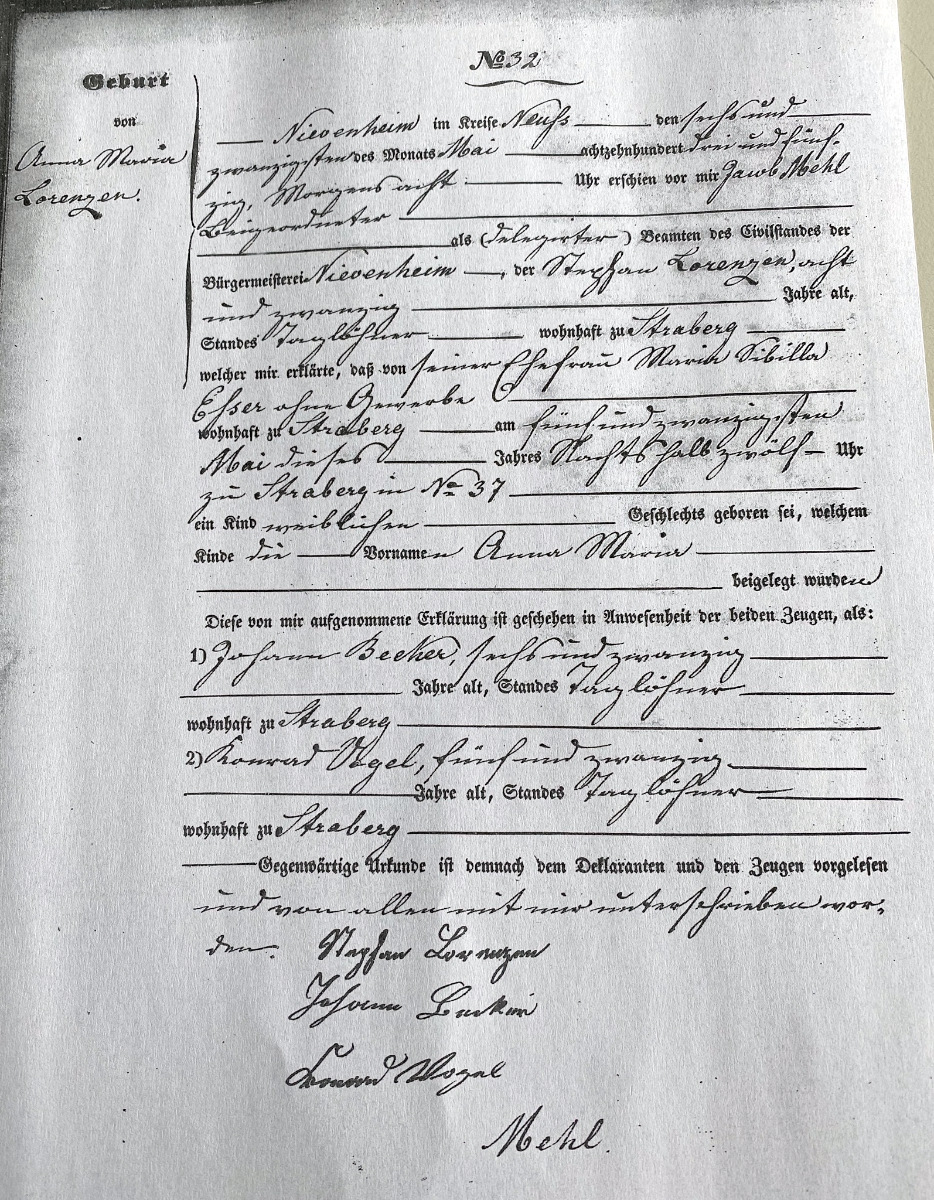 № 32
Geburt
von
Anna Maria
Lorenzen.
Nievenheim im Kreise Neuss den sechs und
zwanzigsten des Monats Mai achtzehnhundert drei und fünf-
zig, Morgens acht Uhr erschien vor mir Jacob Mehl
Beigeordneter
als (delegirter) Beamten des Civilstandes der
Bürgermeisterei Nievenheim, der Stephan Lorenzen, acht
und zwanzig Jahre alt,
Standes Taglöhner wohnhaft zu Straberg
welcher mir erklärte, daß von seiner Ehefrau Maria Sibilla
Esser ohne Gewerbe
wohnhaft zu Straberg am fünf und zwanzigsten
Mai dieses Jahres Nachts halb zwölf Uhr
zu Straberg in No 37
ein Kind weiblichen Geschlechts geboren sei, welchem
Kinde die Vornamen Anna Maria
beigelegt wurden
Diese von mir aufgenommene Erklärung ist geschehen in Anwesenheit der beiden Zeugen, als:
1) Johann Becker, sechs und zwanzig
Jahre alt, Standes Taglöhner
wohnhaft zu Straberg
2) Konrad Vogel, fünf und zwanzig
Jahre alt, Standes Taglöhner
wohnhaft zu Straberg
Gegenwärtige Urkunde ist demnach dem Deklaranten und den Zeugen vorgelesen
und von allen mit mir unterschrieben wor-
den.
Stephan Lorenzen
Johann Becker
Konrad Vogel
Mehl.